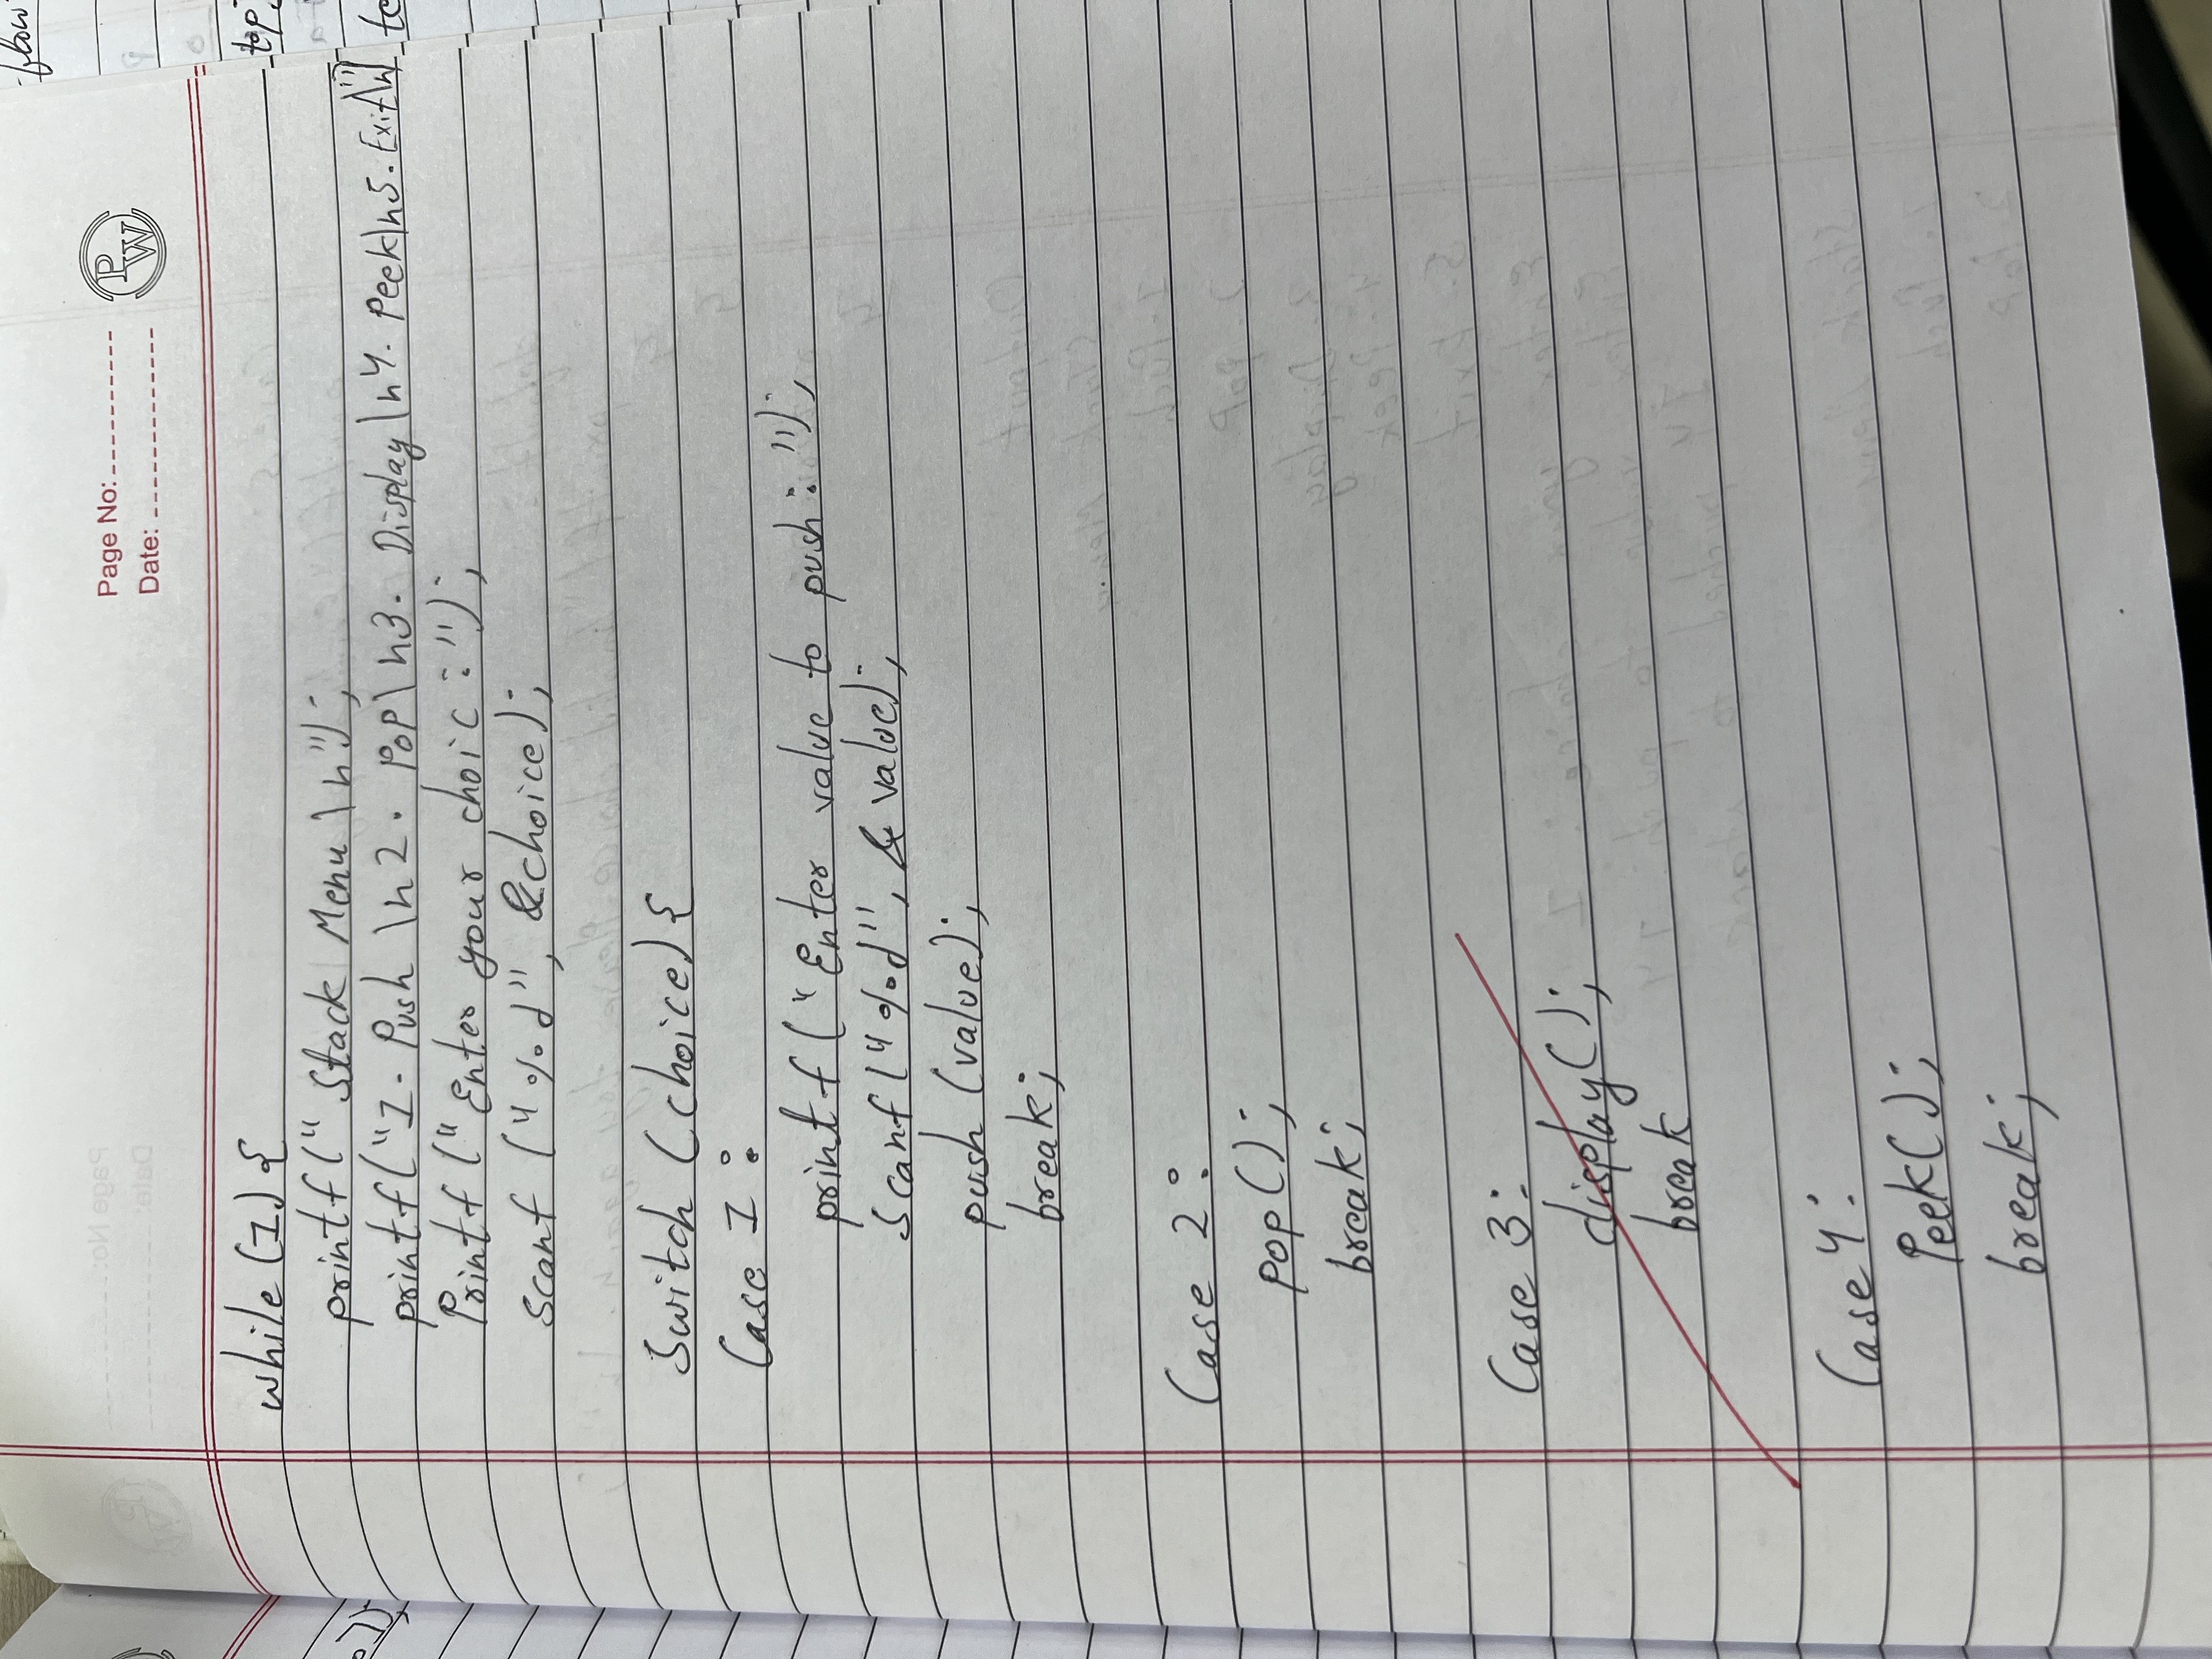 Page No:
Date:
PW
while (1) {
printf (" Stack Menu \n");
printf("1. Push \n 2. POP \n3. Display \n4. Peek\n5. Exit\n")
Printf ("Enter your choic : ");
scanf ("%d", &choice);
Switch (choice) {
Case 1 :
printf ("Enter value to push : ");
Scanf ("%d", & value);
push (value);
break;
Case 2 :
pop();
break;
Case 3:
display();
break
Case 4:
Peek();
break;
flow
top